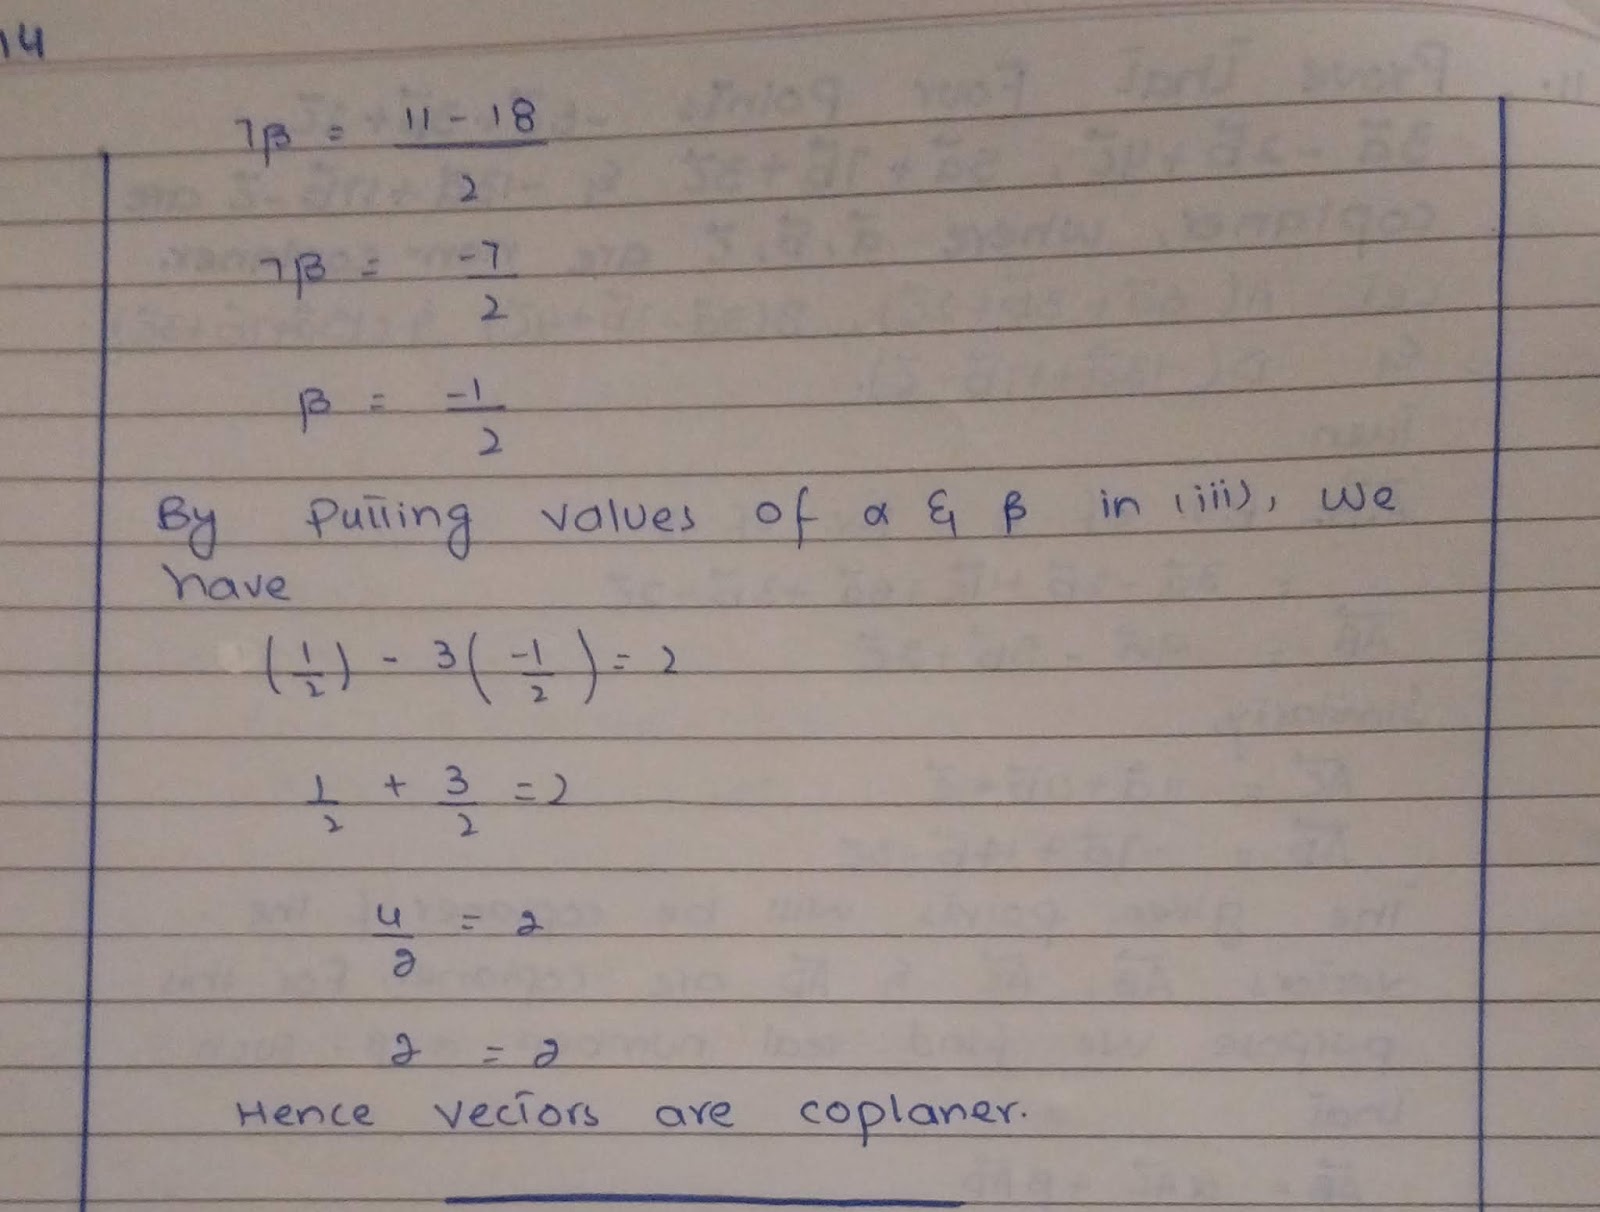 14
7β = 11 - 18 / 2
7β = -7 / 2
β = -1 / 2
By Putting values of α & β in (iii), we
have
(1/2) - 3(-1/2) = 2
1/2 + 3/2 = 2
4/2 = 2
2 = 2
Hence vectors are coplaner.